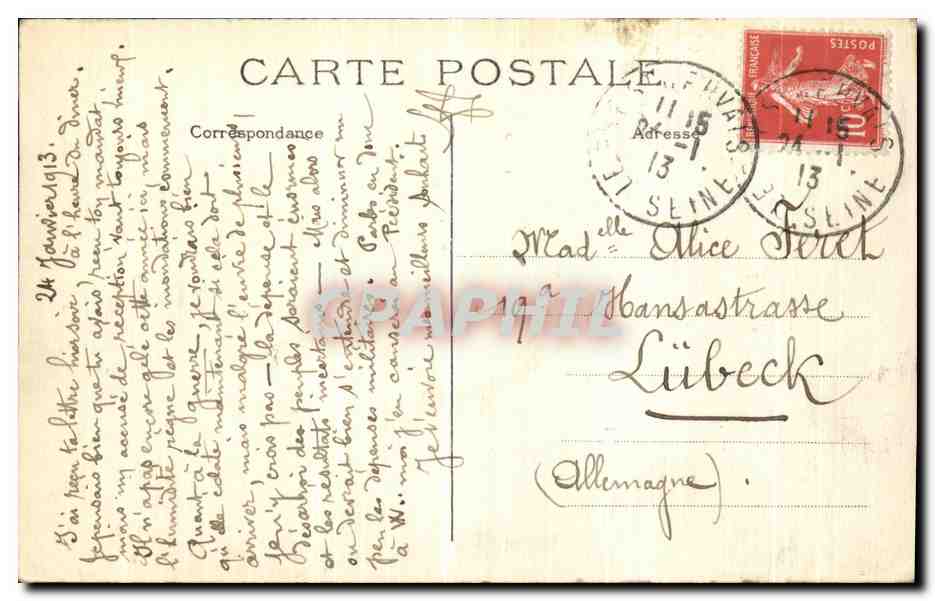 CARTE POSTALE
Correspondance
Adresse
24 Janvier 1913.
J'ai reçu ta lettre hier soir à l'heure du dîner.
Je pensais bien que tu avais reçu ton mandat
mais un accusé de réception vaut toujours mieux.
Il n'a pas encore gelé cette année ici, mais
l'humidité règne et les inondations commencent.
Quant à la guerre, je voudrais bien
qu'elle éclate maintenant si cela doit
arriver, mais malgré l'envie de plusieurs
je n'y crois pas — la dépense et la
désertion des peuples seraient énormes
et les résultats incertains — Mais alors
on devrait bien s'entendre et diminuer un
peu les dépenses militaires. Parles en donc
à W. moi j'en causerai au Président.
Je t'envoie mes meilleurs souhaits
Madelle Alice Feret
19a Hansastrasse
Lübeck
(Allemagne).
POSTES
FRANÇAISE
10
LE PRÉ ST GERVAIS
11 15
24 -1
13
SEINE
11 15
24 -1
13
SEINE
CPAPHIL